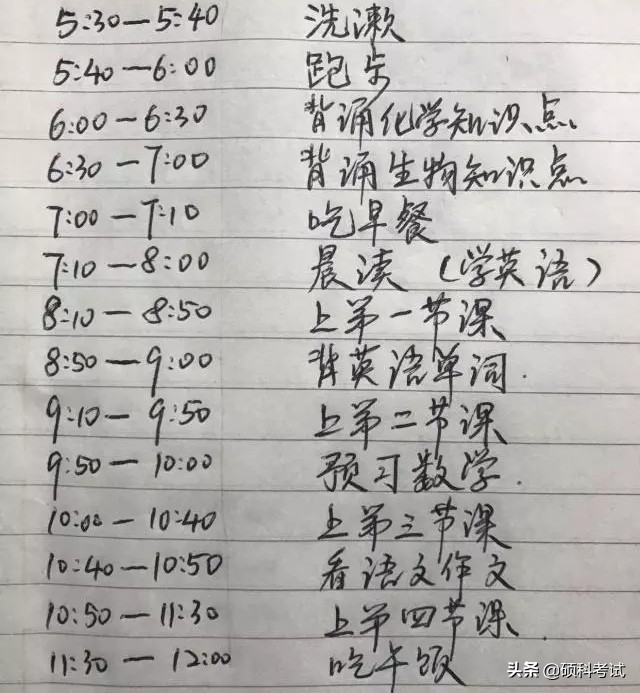 5:30—5:40 洗漱
5:40—6:00 跑步
6:00—6:30 背诵化学知识点
6:30—7:00 背诵生物知识点
7:00—7:10 吃早餐
7:10—8:00 晨读（学英语）
8:10—8:50 上第一节课
8:50—9:00 背英语单词.
9:10—9:50 上第二节课
9:50—10:00 预习数学.
10:00—10:40 上第三节课
10:40—10:50 看语文作文
10:50—11:30 上第四节课.
11:30—12:00 吃午饭
头条@硕科考试